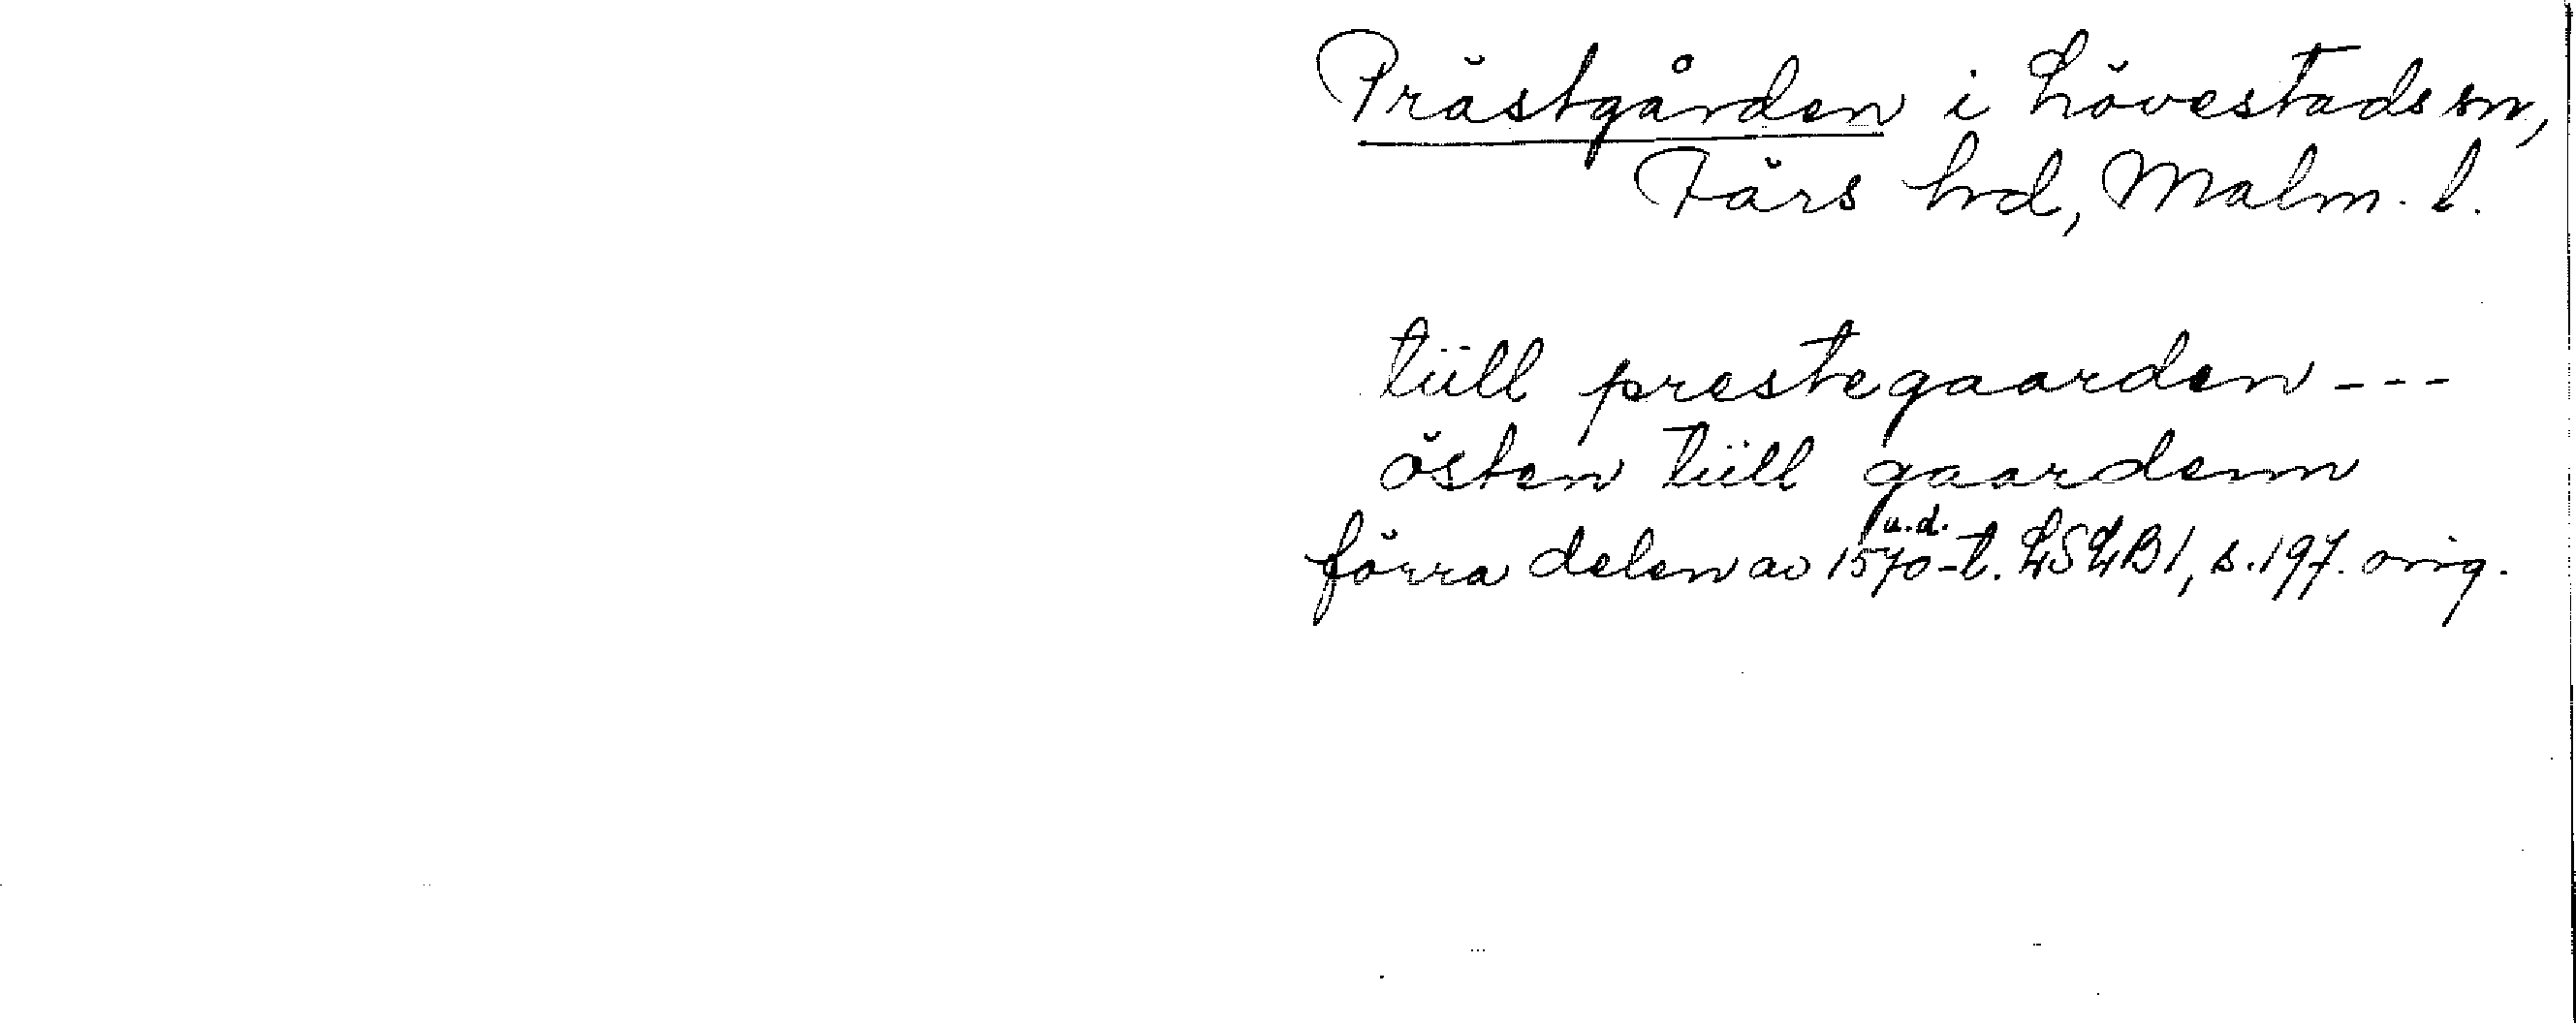 Prästgården i Lövestads sn,
Färs hd, Malm. l.
tiill prestegaarden ---
östen tiill gaardenn
u.d.
förra delen av 1570-t. LSLB1, s. 197. orig.